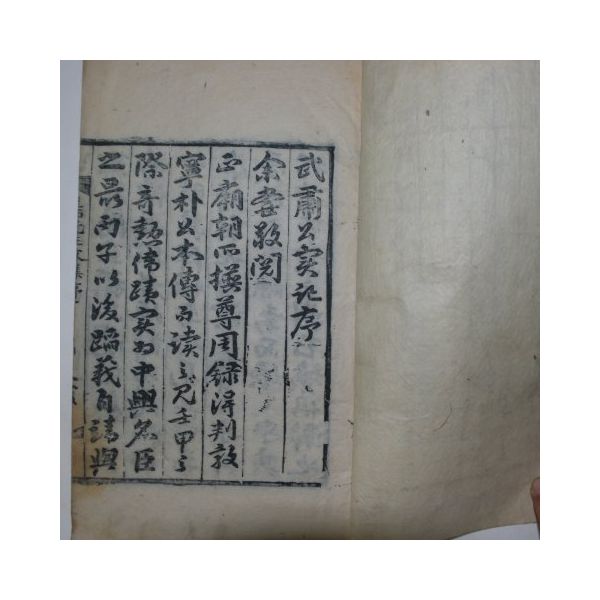 武肅公實記序
余嘗敬閱
正廟朝所撰尊周錄得判敦
寧朴公本傳而讀之見壬甲之
際奇勲偉蹟實為中興名臣
之最丙子以後蹈義自靖與